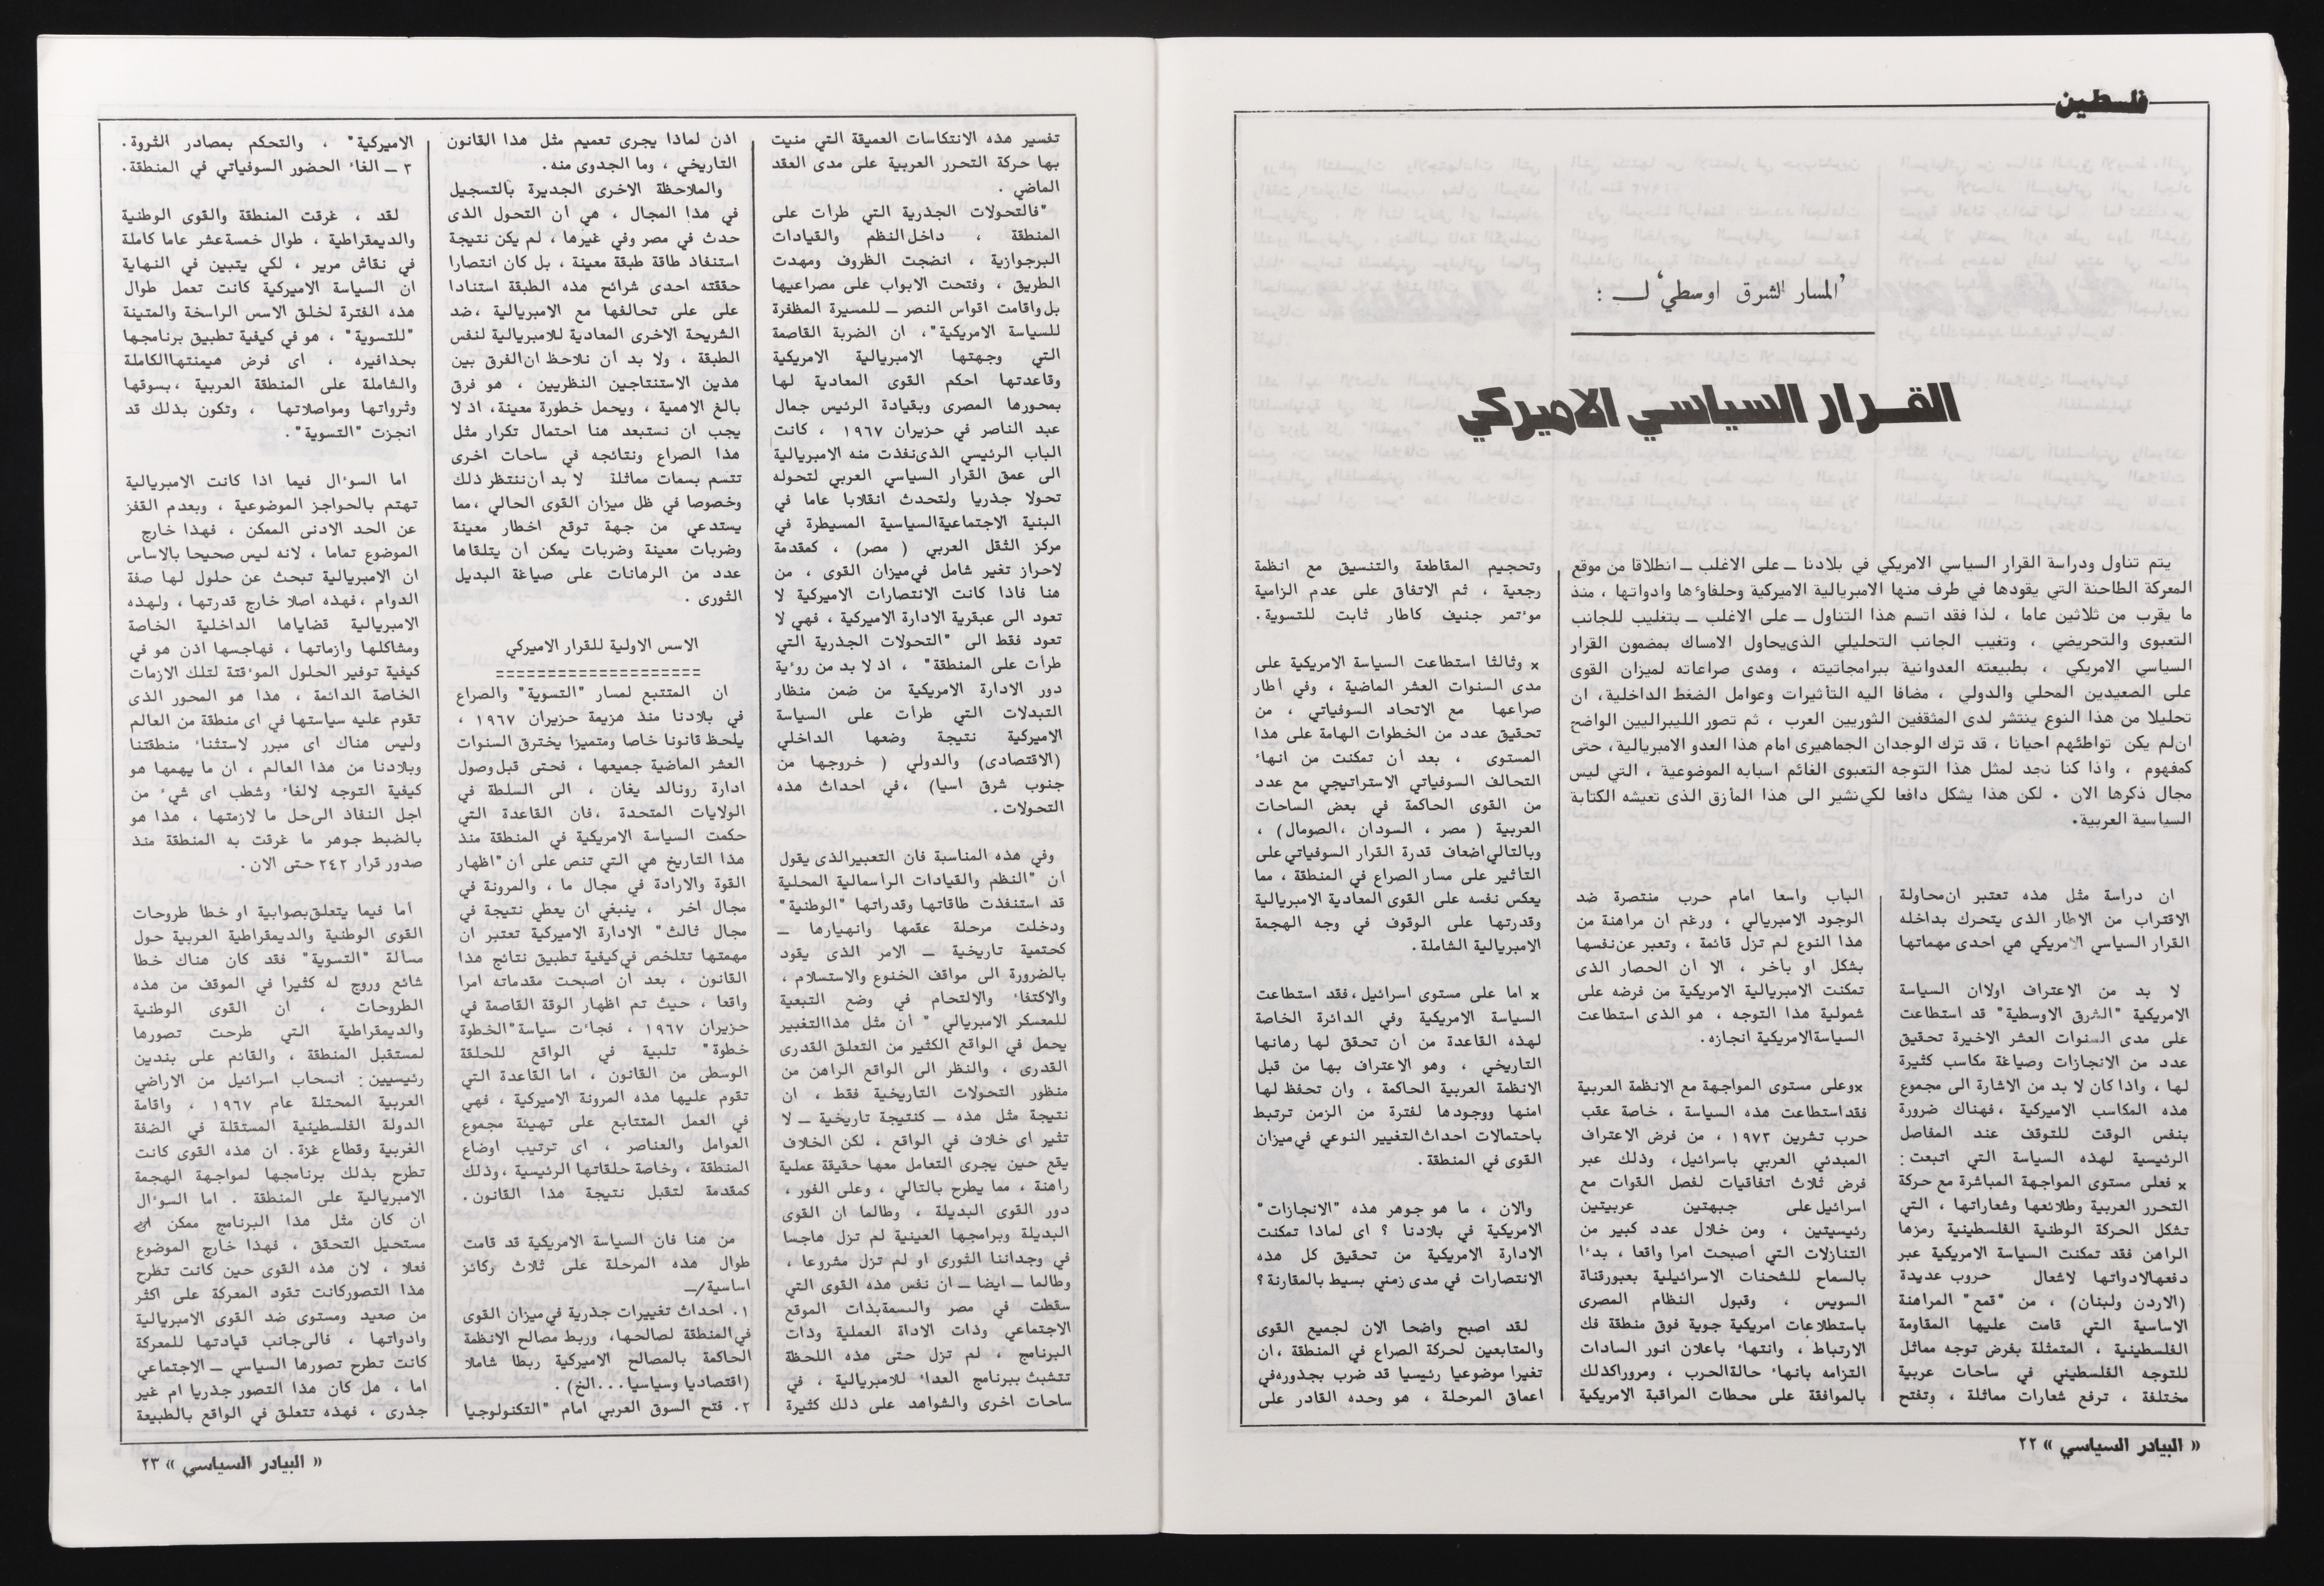 فلسطين
'المسار الشرق اوسطي' لـــ :
القــرار السياسي الاميركي
يتم تناول ودراسة القرار السياسي الامريكي في بلادنا ــ على الاغلب ــ انطلاقا من موقع
المعركة الطاحنة التي يقودها في طرف منها الامبريالية الاميركية وحلفاوءها وادواتها ، منذ
ما يقرب من ثلاثين عاما ، لذا فقد اتسم هذا التناول ــ على الاغلب ــ بتغليب للجانب
التعبوى والتحريضي ، وتغيب الجانب التحليلي الذى يحاول الامساك بمضمون القرار
السياسي الامريكي ، بطبيعته العدوانية ببرامجاتيته ، ومدى صراعاته لميزان القوى
على الصعيدين المحلي والدولي ، مضافا اليه التأثيرات وعوامل الضغط الداخلية، ان
تحليلا من هذا النوع ينتشر لدى المثقفين الثوريين العرب ، ثم تصور الليبراليين الواضح
ان لم يكن تواطئهم احيانا ، قد ترك الوجدان الجماهيرى امام هذا العدو الامبريالية، حتى
كمفهوم ، واذا كنا نجد لمثل هذا التوجه التعبوى الغائم اسبابه الموضوعية ، التي ليس
مجال ذكرها الان . لكن هذا يشكل دافعا لكي نشير الى هذا المأزق الذى تعيشه الكتابة
السياسية العربية.
ان دراسة مثل هذه تعتبر ان محاولة
الاقتراب من الاطار الذى يتحرك بداخله
القرار السياسي الامريكي هي احدى مهماتها
لا بد من الاعتراف اولا ان السياسة
الامريكية "الشرق الاوسطية" قد استطاعت
على مدى السنوات العشر الاخيرة تحقيق
عدد من الانجازات وصياغة مكاسب كثيرة
لها ، واذا كان لا بد من الاشارة الى مجموع
هذه المكاسب الاميركية ، فهناك ضرورة
بنفس الوقت للتوقف عند المفاصل
الرئيسية لهذه السياسة التي اتبعت:
× فعلى مستوى المواجهة المباشرة مع حركة
التحرر العربية وطلائعها وشعاراتها ، التي
تشكل الحركة الوطنية الفلسطينية رمزها
الراهن فقد تمكنت السياسة الامريكية عبر
دفعها لادواتها لاشعال حروب عديدة
(الاردن ولبنان) ، من "قمع" المراهنة
الاساسية التي قامت عليها المقاومة
الفلسطينية ، المتمثلة بفرض توجه مماثل
للتوجه الفلسطيني في ساحات عربية
مختلفة ، ترفع شعارات مماثلة ، وتفتح
الباب واسعا امام حرب منتصرة ضد
الوجود الامبريالي ، ورغم ان مراهنة من
هذا النوع لم تزل قائمة ، وتعبر عن نفسها
بشكل او بأخر ، الا ان الحصار الذى
تمكنت الامبريالية الامريكية من فرضه على
شمولية هذا التوجه ، هو الذى استطاعت
السياسة الامريكية انجازه.
× وعلى مستوى المواجهة مع الانظمة العربية
فقد استطاعت هذه السياسة ، خاصة عقب
حرب تشرين ١٩٧٣ ، من فرض الاعتراف
المبدئي العربي باسرائيل، وذلك عبر
فرض ثلاث اتفاقيات لفصل القوات مع
اسرائيل على جبهتين عربيتين
رئيسيتين ، ومن خلال عدد كبير من
التنازلات التي أصبحت امرا واقعا ، بدءا
بالسماح للشحنات الاسرائيلية بعبور قناة
السويس ، وقبول النظام المصرى
باستطلاعات امريكية جوية فوق منطقة فك
الارتباط ، وانتهاء باعلان انور السادات
التزامه بانهاء حالة الحرب ، ومرورا كذلك
بالموافقة على محطات المراقبة الامريكية
وتحجيم المقاطعة والتنسيق مع انظمة
رجعية ، ثم الاتفاق على عدم الزامية
موءتمر جنيف كاطار ثابت للتسوية.
× وثالثا استطاعت السياسة الامريكية على
مدى السنوات العشر الماضية ، وفي أطار
صراعها مع الاتحاد السوفياتي ، من
تحقيق عدد من الخطوات الهامة على هذا
المستوى ، بعد أن تمكنت من انهاء
التحالف السوفياتي الاستراتيجي مع عدد
من القوى الحاكمة في بعض الساحات
العربية ( مصر ، السودان ،الصومال) ،
وبالتالي اضعاف قدرة القرار السوفياتي على
التأثير على مسار الصراع في المنطقة ، مما
يعكس نفسه على القوى المعادية الامبريالية
وقدرتها على الوقوف في وجه الهجمة
الامبريالية الشاملة.
× اما على مستوى اسرائيل، فقد استطاعت
السياسة الامريكية وفي الدائرة الخاصة
لهذه القاعدة من أن تحقق لها رهانها
التاريخي ، وهو الاعتراف بها من قبل
الانظمة العربية الحاكمة ، وان تحفظ لها
امنها ووجودها لفترة من الزمن ترتبط
باحتمالات احداث التغيير النوعي في ميزان
القوى في المنطقة.
والان ، ما هو جوهر هذه "الانجازات"
الامريكية في بلادنا ؟ اى لماذا تمكنت
الادارة الامريكية من تحقيق كل هذه
الانتصارات في مدى زمني بسيط بالمقارنة؟
لقد اصبح واضحا الان لجميع القوى
والمتابعين لحركة الصراع في المنطقة ،ان
تغيرا موضوعيا رئيسيا قد ضرب بجذوره في
اعماق المرحلة ، هو وحده القادر على
« البيادر السياسي » ٢٢
تفسير هذه الانتكاسات العميقة التي منيت
بها حركة التحرر العربية على مدى العقد
الماضي .
"فالتحولات الجذرية التي طرات على
المنطقة ، داخل النظم والقيادات
البرجوازية ، انضجت الظروف ومهدت
الطريق ، وفتحت الابواب على مصراعيها
بل واقامت اقواس النصر ــ للمسيرة المظفرة
للسياسة الامريكية"، ان الضربة القاصمة
التي وجهتها الامبريالية الامريكية
وقاعدتها احكم القوى المعادية لها
بمحورها المصرى وبقيادة الرئيس جمال
عبد الناصر في حزيران ١٩٦٧ ، كانت
الباب الرئيسي الذى نفذت منه الامبريالية
الى عمق القرار السياسي العربي لتحوله
تحولا جذريا ولتحدث انقلابا عاما في
البنية الاجتماعية السياسية المسيطرة في
مركز الثقل العربي ( مصر) ، كمقدمة
لاحراز تغير شامل في ميزان القوى ، من
هنا فاذا كانت الانتصارات الاميركية لا
تعود الى عبقرية الادارة الاميركية ، فهي لا
تعود فقط الى "التحولات الجذرية التي
طرأت على المنطقة" ، اذ لا بد من روءية
دور الادارة الامريكية من ضمن منظار
التبدلات التي طرأت على السياسة
الاميركية نتيجة وضعها الداخلي
(الاقتصادى) والدولي ( خروجها من
جنوب شرق اسيا) ،في احداث هذه
التحولات.
وفي هذه المناسبة فان التعبير الذى يقول
ان "النظم والقيادات الراسمالية المحلية
قد استنفذت طاقاتها وقدراتها "الوطنية"
ودخلت مرحلة عقمها وانهيارها ــ
كحتمية تاريخية ــ الامر الذى يقود
بالضرورة الى مواقف الخنوع والاستسلام ،
والاكتفاء والالتحام في وضع التبعية
للمعسكر الامبريالي " أن مثل هذا التغبير
يحمل في الواقع الكثير من التعلق القدرى
القدرى ، والنظر الى الواقع الراهن من
منظور التحولات التاريخية فقط ، ان
نتيجة مثل هذه ــ كنتيجة تاريخية ــ لا
تثير اى خلاف في الواقع ، لكن الخلاف
يقع حين يجرى التعامل معها حقيقة عملية
راهنة ، مما يطرح بالتالي ، وعلى الفور ،
دور القوى البديلة ، وطالما ان القوى
البديلة وبرامجها العينية لم تزل هاجسا
في وجداننا الثورى او لم تزل مشروعا ،
وطالما ــ ايضا ــ ان نفس هذه القوى التي
سقطت في مصر والسمة بذات الموقع
الاجتماعي وذات الاداة العملية وذات
البرنامج ، لم تزل حتى هذه اللحظة
تتشبث ببرنامج العداء للامبريالية ، في
ساحات اخرى والشواهد على ذلك كثيرة
اذن لماذا يجرى تعميم مثل هذا القانون
التاريخي ، وما الجدوى منه.
والملاحظة الاخرى الجديرة بالتسجيل
في هذا المجال ، هي أن التحول الذى
حدث في مصر وفي غيرها ، لم يكن نتيجة
استنفاذ طاقة طبقة معينة ، بل كان انتصارا
حققته احدى شرائح هذه الطبقة استنادا
على على تحالفها مع الامبريالية ،ضد
الشريحة الاخرى المعادية للامبريالية لنفس
الطبقة ، ولا بد أن نلاحظ ان الفرق بين
هذين الاستنتاجين النظريين ، هو فرق
بالغ الاهمية ، ويحمل خطورة معينة، اذ لا
يجب ان نستبعد هنا احتمال تكرار مثل
هذا الصراع ونتائجه في ساحات اخرى
تتسم بسمات مماثلة لا بد أن ننتظر ذلك
وخصوصا في ظل ميزان القوى الحالي ،مما
يستدعي من جهة توقع اخطار معينة
وضربات معينة وضربات يمكن ان يتلقاها
عدد من الرهانات على صياغة البديل
الثورى .
الاسس الاولية للقرار الاميركي
====================
ان المتتبع لمسار "التسوية" والصراع
في بلادنا منذ هزيمة حزيران ١٩٦٧ ،
يلحظ قانونا خاصا ومتميزا يخترق السنوات
العشر الماضية جميعها ، فحتى قبل وصول
ادارة رونالد يغان ، الى السلطة في
الولايات المتحدة ،فان القاعدة التي
حكمت السياسة الامريكية في المنطقة منذ
هذا التاريخ هي التي تنص على ان "اظهار
القوة والارادة في مجال ما ، والمرونة في
مجال اخر ، ينبغي ان يعطي نتيجة في
مجال ثالث" الادارة الاميركية تعتبر ان
مهمتها تتلخص في كيفية تطبيق نتائج هذا
القانون ، بعد أن اصبحت مقدماته امرا
واقعا ، حيث تم اظهار الوقة القاصمة في
حزيران ١٩٦٧ ، فجاءت سياسة "الخطوة
خطوة" تلبية في الواقع للحلقة
الوسطى من القانون ، اما القاعدة التي
تقوم عليها هذه المرونة الاميركية ، فهي
في العمل المتتابع على تهيئة مجموع
العوامل والعناصر ، اى ترتيب اوضاع
المنطقة ، وخاصة حلقاتها الرئيسية ،وذلك
كمقدمة لتقبل نتيجة هذا القانون.
من هنا فان السياسة الامريكية قد قامت
طوال هذه المرحلة على ثلاث ركائز
اساسية/ــ
١. احداث تغييرات جذرية في ميزان القوى
في المنطقة لصالحها، وربط مصالح الانظمة
الحاكمة بالمصالح الاميركية ربطا شاملا
(اقتصاديا وسياسيا...الخ) .
٢. فتح السوق العربي امام "التكنولوجيا
الاميركية" ، والتحكم بمصادر الثروة.
٣ ــ الغاء الحضور السوفياتي في المنطقة.
لقد ، غرقت المنطقة والقوى الوطنية
والديمقراطية ، طوال خمسة عشر عاما كاملة
في نقاش مرير ، لكي يتبين في النهاية
ان السياسة الاميركية كانت تعمل طوال
هذه الفترة لخلق الاسس الراسخة والمتينة
"للتسوية" ، هو في كيفية تطبيق برنامجها
بحذافيره ، اى فرض هيمنتها الكاملة
والشاملة على المنطقة العربية ،بسوقها
وثرواتها ومواصلاتها ، وتكون بذلك قد
انجزت "التسوية".
اما السوءال فيما اذا كانت الامبريالية
تهتم بالحواجز الموضوعية ، وبعدم القفز
عن الحد الادنى الممكن ، فهذا خارج
الموضوع تماما ، لانه ليس صحيحا بالاساس
ان الامبريالية تبحث عن حلول لها صفة
الدوام ،فهذه اصلا خارج قدرتها ، ولهذه
الامبريالية قضاياها الداخلية الخاصة
ومشاكلها وازماتها ، فهاجسها اذن هو في
كيفية توفير الحلول الموءقتة لتلك الازمات
الخاصة الدائمة ، هذا هو المحور الذى
تقوم عليه سياستها في اى منطقة من العالم
وليس هناك اى مبرر لاستثناء منطقتنا
وبلادنا من هذا العالم ، ان ما يهمها هو
كيفية التوجه لالغاء وشطب اى شيء من
اجل النفاذ الى حل ما لازمتها ، هذا هو
بالضبط جوهر ما غرقت به المنطقة منذ
صدور قرار ٢٤٢ حتى الان .
أما فيما يتعلق بصوابية او خطأ طروحات
القوى الوطنية والديمقراطية العربية حول
مسألة "التسوية" فقد كان هناك خطأ
شائع وروج له كثيرا في الموقف من هذه
الطروحات ، ان القوى الوطنية
والديمقراطية التي طرحت تصورها
لمستقبل المنطقة ، والقائم على بندين
رئيسيين: انسحاب اسرائيل من الاراضي
العربية المحتلة عام ١٩٦٧ ، واقامة
الدولة الفلسطينية المستقلة في الضفة
الغربية وقطاع غزة. ان هذه القوى كانت
تطرح بذلك برنامجها لمواجهة الهجمة
الامبريالية على المنطقة . اما السوءال
ان كان مثل هذا البرنامج ممكن او
مستحيل التحقق ، فهذا خارج الموضوع
فعلا ، لان هذه القوى حين كانت تطرح
هذا التصور كانت تقود المعركة على اكثر
من صعيد ومستوى ضد القوى الامبريالية
وادواتها ، فالى جانب قيادتها للمعركة
كانت تطرح تصورها السياسي ــ الاجتماعي
اما ، هل كان هذا التصور جذريا ام غير
جذرى ، فهذه تتعلق في الواقع بالطبيعة
« البيادر السياسي » ٢٣